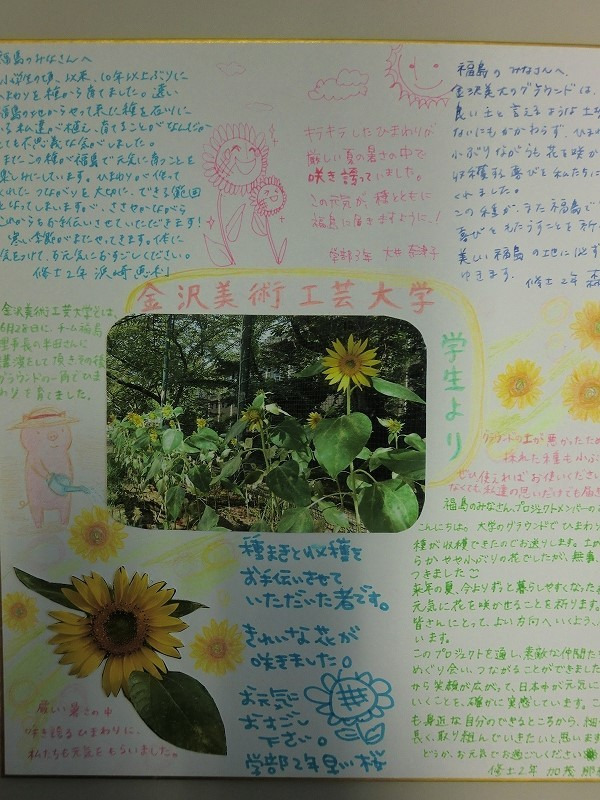 福島のみなさんへ
小学生の頃、以来、10年以上ぶりに
ひまわりを種から育てました。遠い
福島のやせからやって来た種を石川に
いる私達が植え、育てることがなんだか
とても不思議な気がしました。
またこの種が福島で元気に育つことを
楽しみにしています。ひまわりが作って
くれたつながりを大切に、できる範囲
となってしまいますが、ささやかながら
これからもお手伝いさせていただきます!
寒い季節がまたやってきます。体に
気をつけて、お元気におすごしください。
修士2年 浜崎
キラキラしたひまわりが
厳しい夏の暑さの中で
咲き誇っていました。
この元気が、種とともに
福島に届きますように、!
学部3年 大井
福島のみなさんへ、
金沢美大のグラウンドは、
良い土と言えるような土
ないにもかかわらず、ひまわ
小ぶりながらも花を咲か
収穫する喜びを私たちに
くれました。
この種が、また福島で
喜びをもたらすことを祈
美しい福島の地に必ず
ゆきます。
修士2年 森
金沢美術工芸大学
学生より
金沢美術工芸大学では、
6月28日に、チーム福島
理事長の半田さんに
講演をして頂きその後
グラウンドの一角でひま
わりを育てました。
グラウンドの土が悪かったため
採れた種も小ぶ
ぜひ使えればお使いください
なくても私達の思いだけでも届き
福島のみなさん、プロジェクトメンバーの
こんにちは。大学のグラウンドでひまわり
種が収穫できたのでお送りします。土が
らかやや小ぶりの花でしたが、無事、
つきました
来年の夏、今よりずっと暮らしやすくなった
元気に花を咲かせることを祈ります。
皆さんにとって、よい方向へいくよう、
います。
このプロジェクトを通し、素敵な仲間た
めぐり会い、つながることができました
から笑顔が広がって、日本中が元気に
いくことを、確かに実感しています。こ
も身近な自分のできるところから、細
長く、取り組んでいきたいと思います
どうか、お元気でお過ごしください
修士2年 加茂 那
種まきと収穫を
お手伝いさせて
いただいた者です。
きれいな花が
咲きました。
お元気で
おすごし
下さい。
学部2年 早川 桜
厳しい暑さの中
咲き誇るひまわりに、
私たちも元気をもらいました。